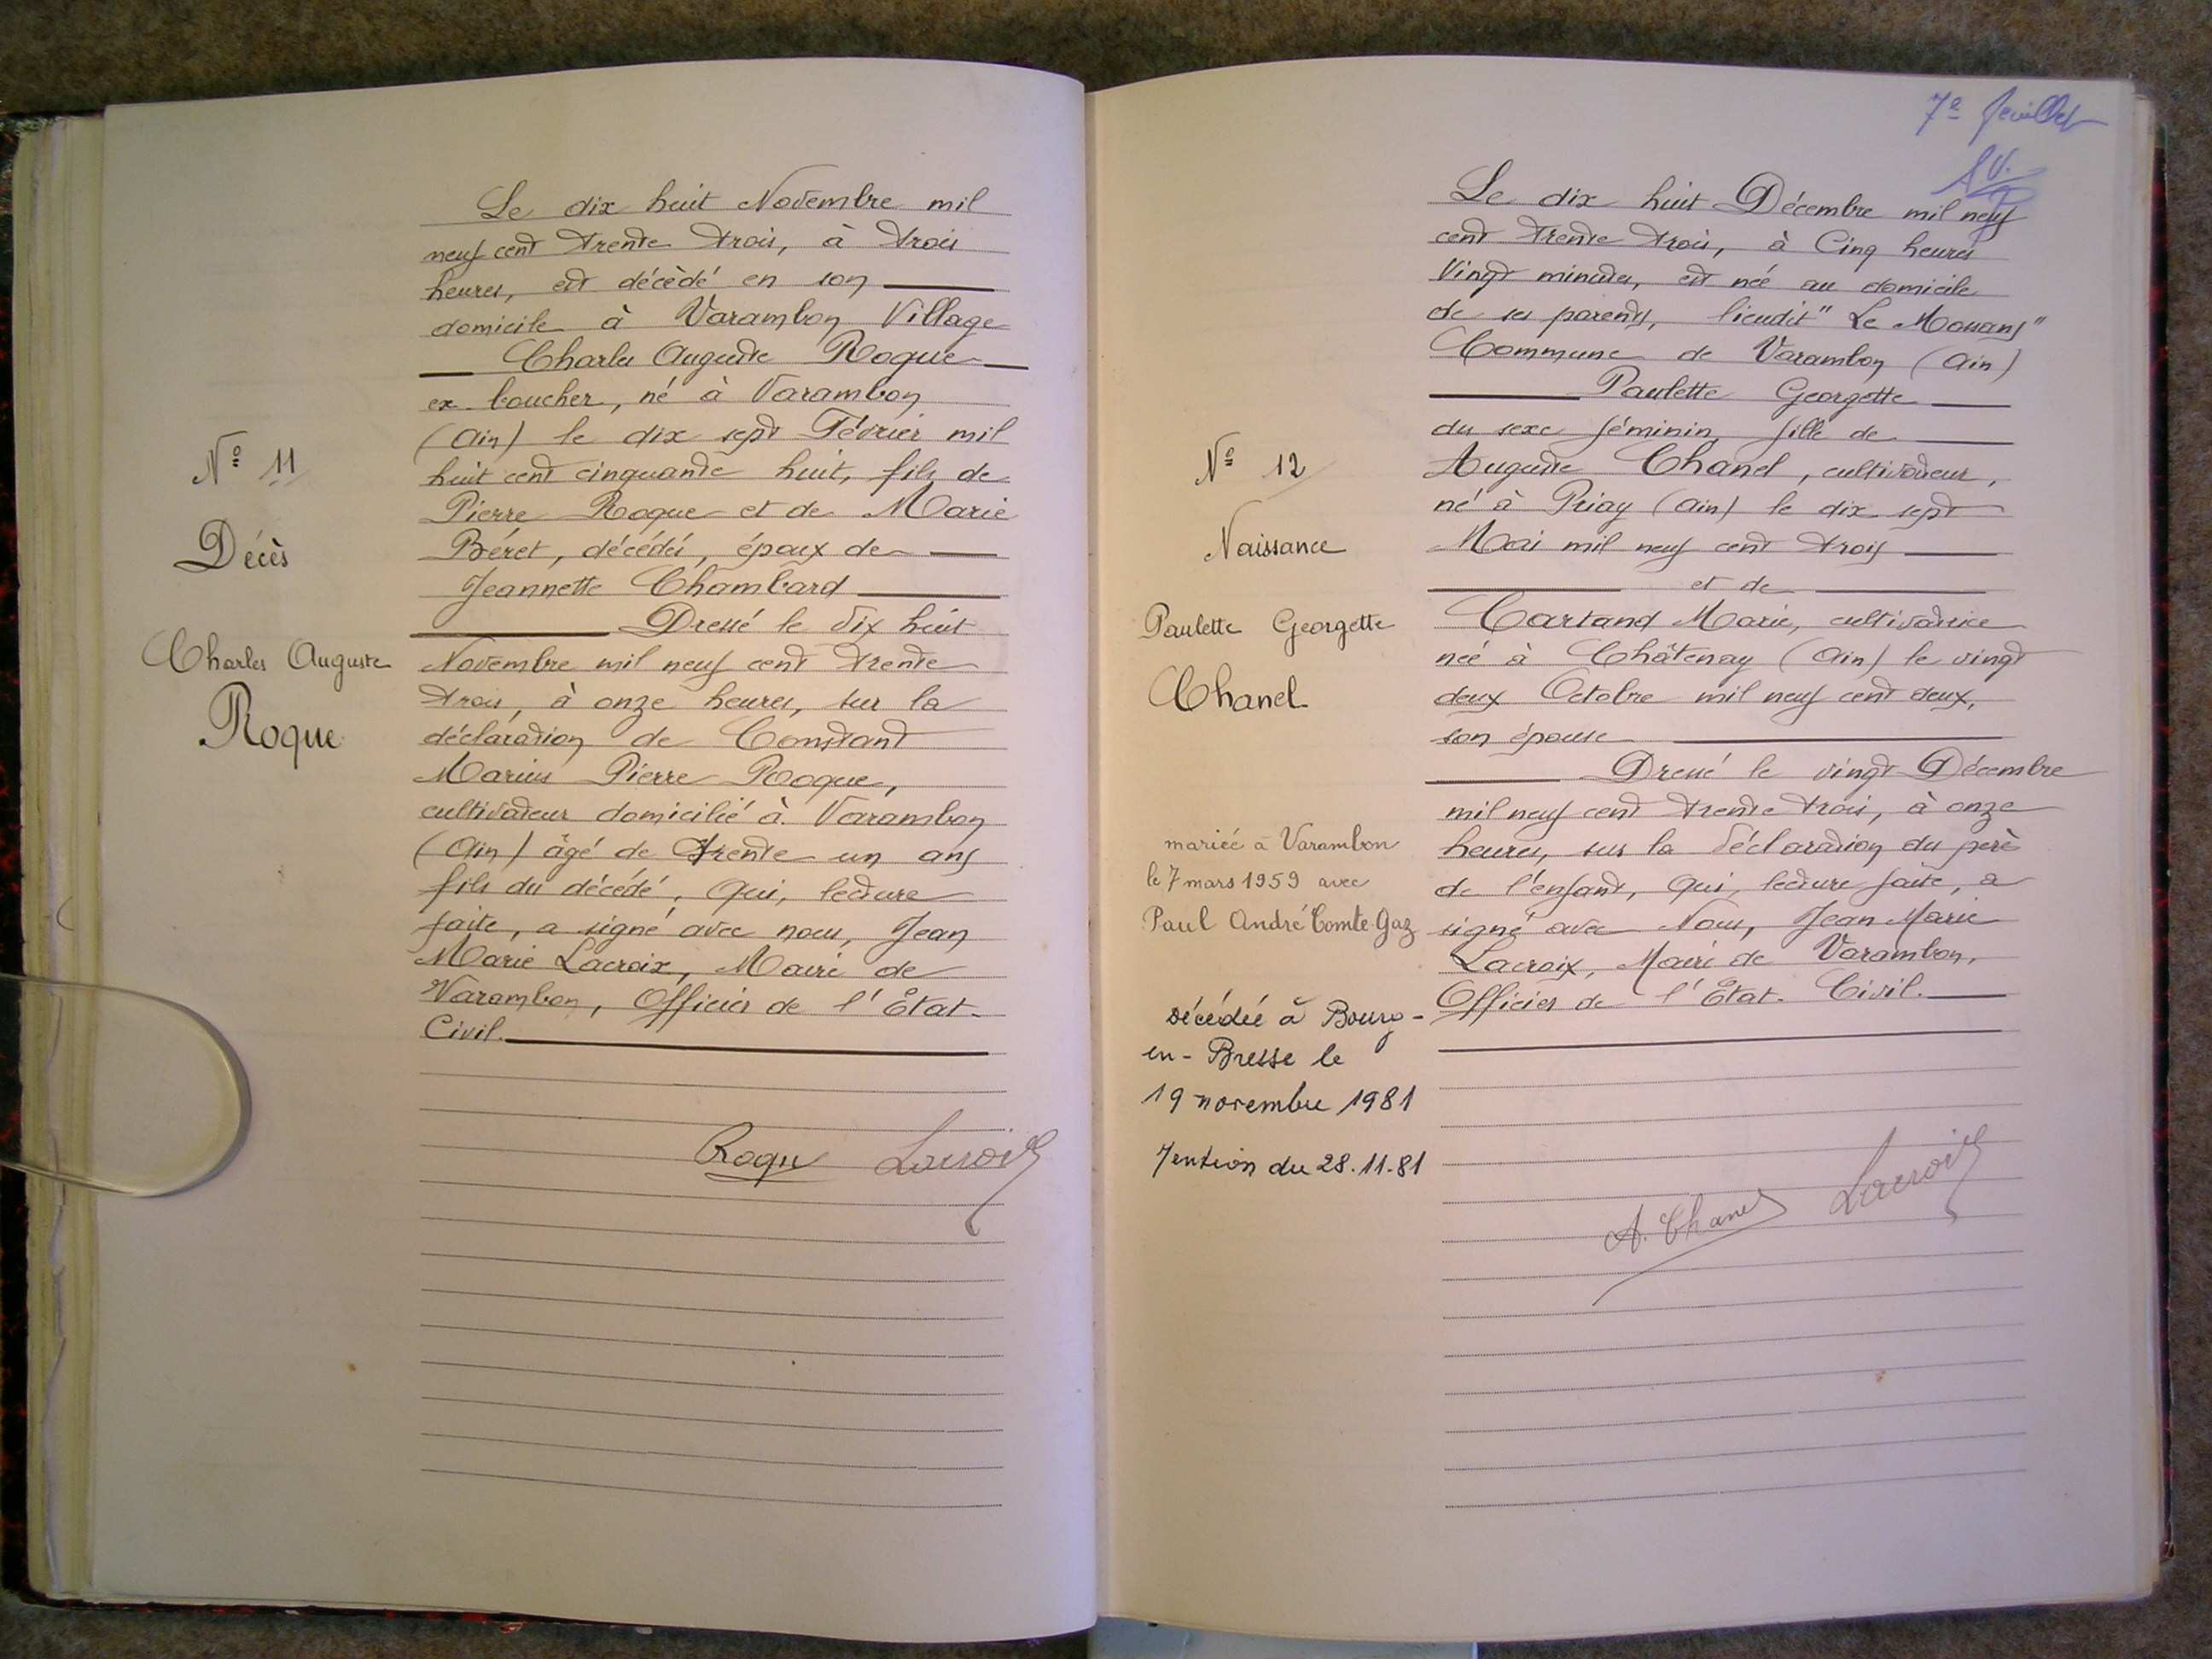 N° 11
Décès
Charles Auguste
Roque
Le dix huit Novembre mil
neuf cent trente trois, à trois
heures, est décèdé en son
domicile à Varambon Village
Charles Auguste Roque
ex boucher, né à Varambon
(Ain) le dix sept Février mil
huit cent cinquante huit, fils de
Pierre Roque et de Marie
Béret, décédés, époux de
Jeannette Chambard
Dressé le dix huit
Novembre mil neuf cent trente
trois, à onze heures, sur la
déclaration de Constant
Marius Pierre Roque,
cultivateur domicilié à Varambon
(Ain) âgé de trente un ans
fils du décédé, qui, lecture
faite, a signé avec nous, Jean
Marie Lacroix, Maire de
Varambon, Officier de l'Etat-
Civil.
Roque Lacroix
7e feuillet
N° 12
Naissance
Paulette Georgette
Chanel
mariée à Varambon
le 7 mars 1959 avec
Paul André Comte Gaz
décédée à Bourg-
en-Bresse le
19 novembre 1981
Mention du 28.11.81
Le dix huit Décembre mil neuf
cent trente trois, à Cinq heures
Vingt minutes, est née au domicile
de ses parents, lieudit "Le Mouans"
Commune de Varambon (Ain)
Paulette Georgette
du sexe féminin fille de
Auguste Chanel, cultivateur,
né à Priay (Ain) le dix sept
Mai mil neuf cent trois
et de
Cartand Marie, cultivatrice
née à Châtenay (Ain) le vingt
deux Octobre mil neuf cent deux,
son épouse
Dressé le vingt Décembre
mil neuf cent trente trois, à onze
heures, sur la déclaration du père
de l'enfant, qui, lecture faite, a
signé avec Nous, Jean Marie
Lacroix, Maire de Varambon,
Officier de l'Etat-Civil.
A. Chanel Lacroix